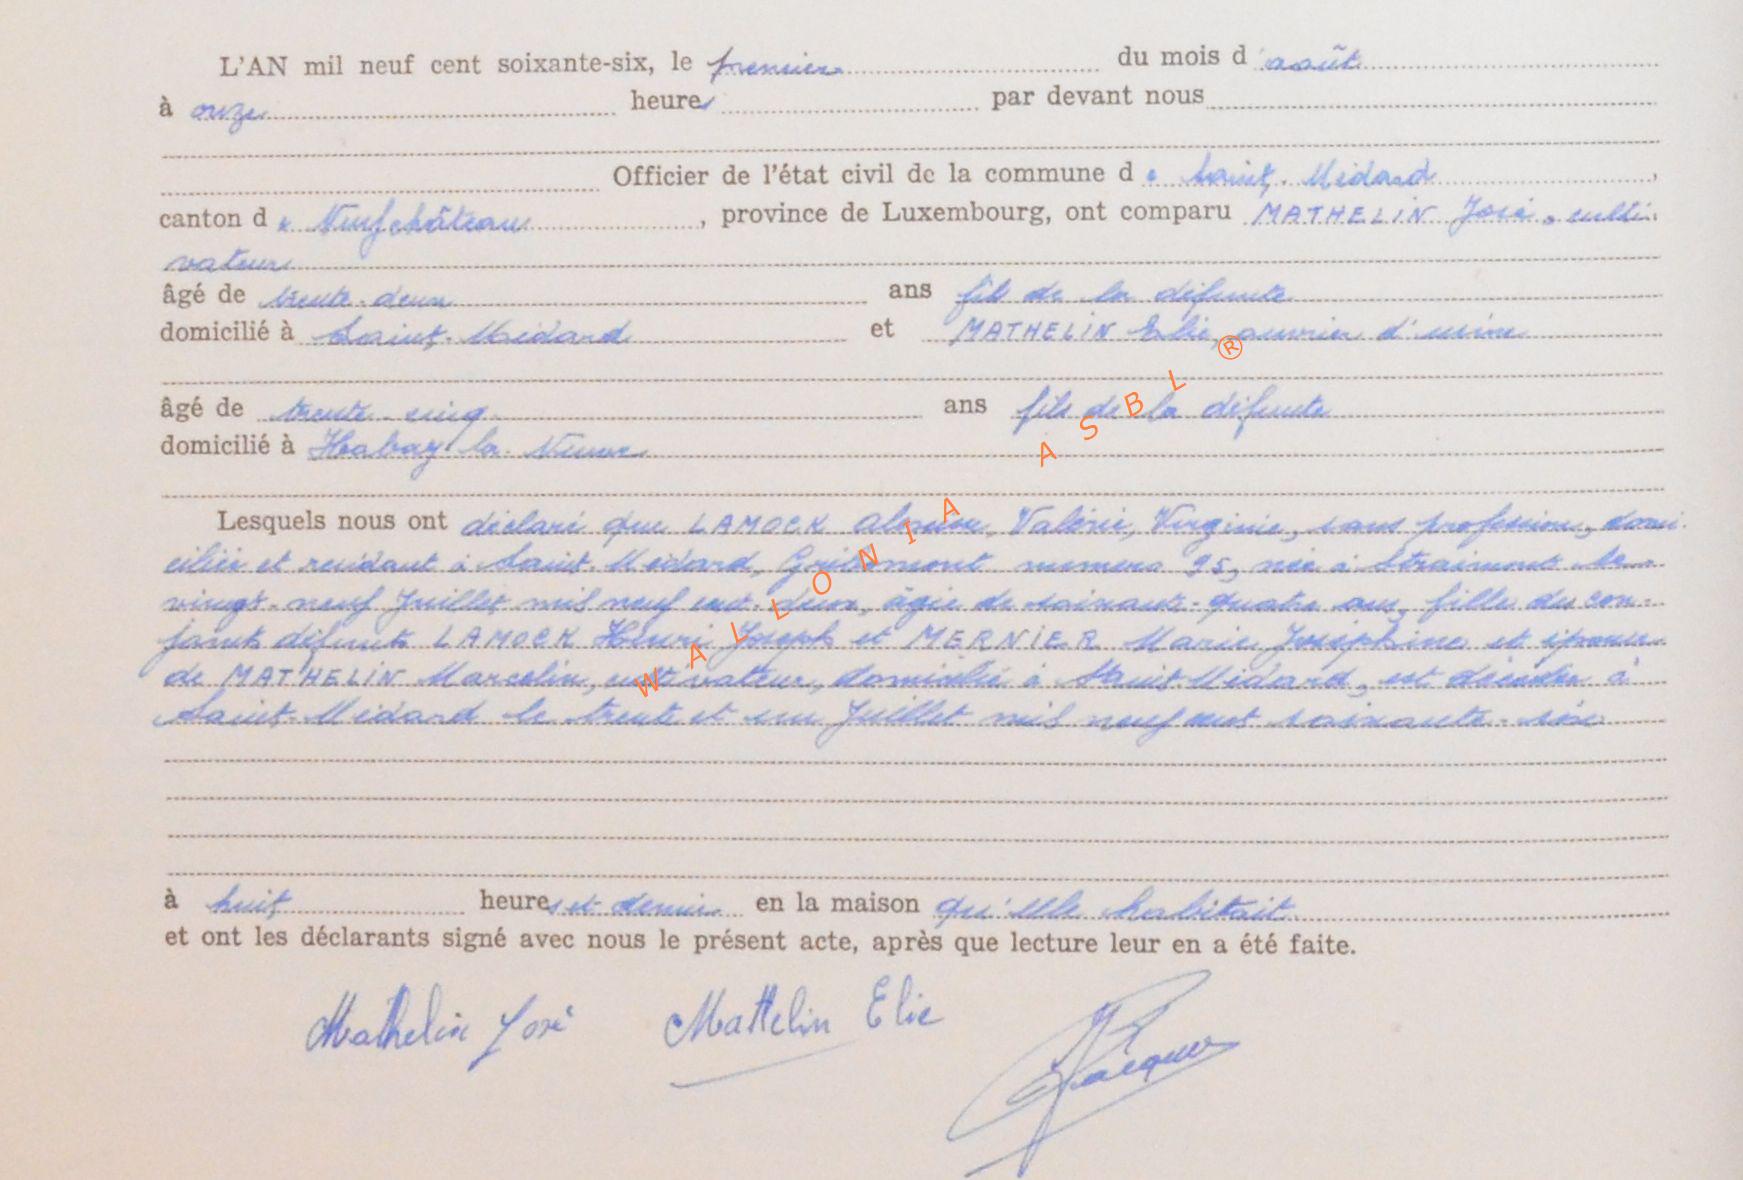 L'AN mil neuf cent soixante-six, le premier du mois d'août
à onze heures par devant nous
Officier de l'état civil de la commune de Saint-Médard,
canton de Neufchâteau, province de Luxembourg, ont comparu MATHELIN José, culti-
vateur
âgé de trente-deux ans fils de la défunte
domicilié à Saint-Médard et MATHELIN Elie, ouvrier d'usine
âgé de trente-cinq ans fils de la défunte
domicilié à Habay-la-Neuve
Lesquels nous ont déclaré que LAMOCK Valérie, Virginie, sans profession, domi-
ciliée et résidant à Saint-Médard, numéro 95, née à Straimont le
vingt-neuf Juillet mil neuf cent-deux, âgée de soixante-quatre ans, fille des con-
joints défunts LAMOCK Henri Joseph et MERNIER Marie Joséphine et épouse
de MATHELIN Marcelin, cultivateur, domicilié à Saint-Médard, est décédée à
Saint-Médard le trente et un Juillet mil neuf cent soixante-six
à huit heures et demie en la maison qu'elle habitait
et ont les déclarants signé avec nous le présent acte, après que lecture leur en a été faite.
Mathelin José Mathelin Elie Jacques
WALLONIA ASBL ®